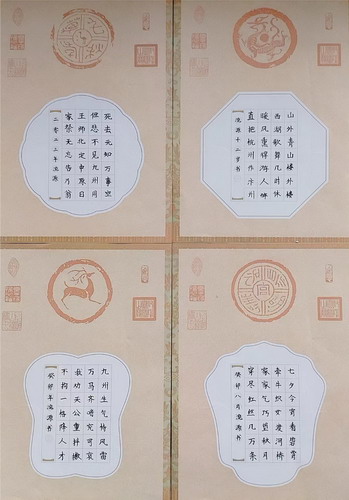 死去元知万事空
但悲不见九州同
王师北定中原日
家祭无忘告乃翁
二零二二年流源
山外青山楼外楼
西湖歌舞几时休
暖风熏得游人醉
直把杭州作汴州
流源十二岁书
九州生气恃风雷
万马齐喑究可哀
我劝天公重抖擞
不拘一格降人才
癸卯年流源书
七夕今宵看碧霄
牵牛织女渡河桥
家家乞巧望秋月
穿尽红丝几万条
癸卯八月流源书